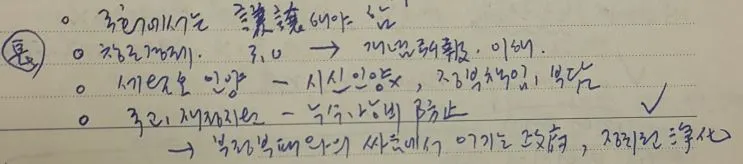 ○ 국회에서는 議讓해야 함
○ 창조경제. 3.0 → 개념 이해.
○ 세월호 인양 - 시신인양X, 정부책임, 부담
○ 국고, 재정지원 - 누수, 낭비 防止
→ 부정부패와의 싸움에서 이기는 政府, 정치권 淨化